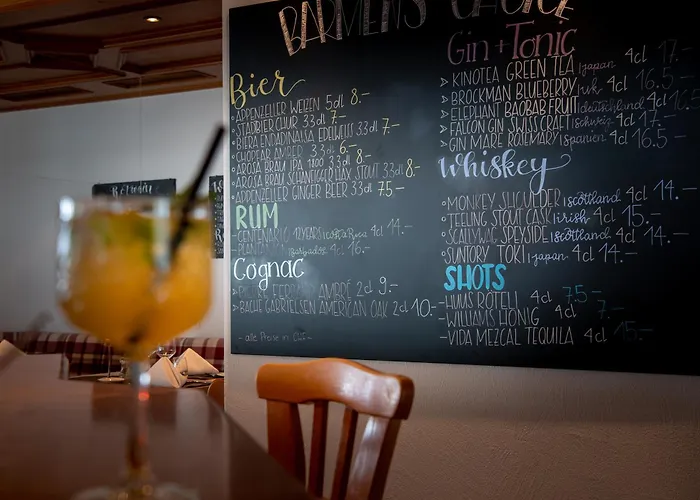 BARMEN'S CHOICE
Bier
APPENZELLER WEIZEN 5dl 8.-
STADTBIER CHUR 33dl 7.-
BIERA ENDADINAISA EDELWEISS 33dl 7.-
CHOPFAB AMBER 33dl 6.-
AROSA BRÄU IPA 1800 33dl 8.-
AROSA BRÄU SCHANFIGGER HAX STOUT 33dl 8.-
APPENZELLER GINGER BEER 33dl 7.5-
RUM
CENTENARIO 12YEARS | Costa Rica 4cl 14.-
4cl 16.-
Cognac
PIERRE FERRAND AMBRÉ 2cl 9.-
BACHE GABRIELSEN AMERICAN OAK 2cl 10.-
- alle Preise in CHF -
Gin + Tonic
KINOTEA GREEN TEA | japan 4cl 17.-
BROCKMAN BLUEBERRY | uk 4cl 16.5-
ELEPHANT BAOBAB FRUIT | deutschland 4cl 16.5-
FALCON GIN SWISS CRAFT | schweiz 4cl 17.-
GIN MARE ROSEMARY | spanien 4cl 16.5-
Whiskey
MONKEY SHOULDER | scottland 4cl 14.-
TEELING STOUT CASK | irish 4cl 15.-
SCALLYWAG SPEYSIDE | scottland 4cl 14.-
SUNTORY TOKI | japan 4cl 14.-
SHOTS
HUUS RÖTELI 4cl 7.5-
WILLIAMS HONIG 4cl 7.-
VIDA MEZCAL TEQUILA 4cl 15.-